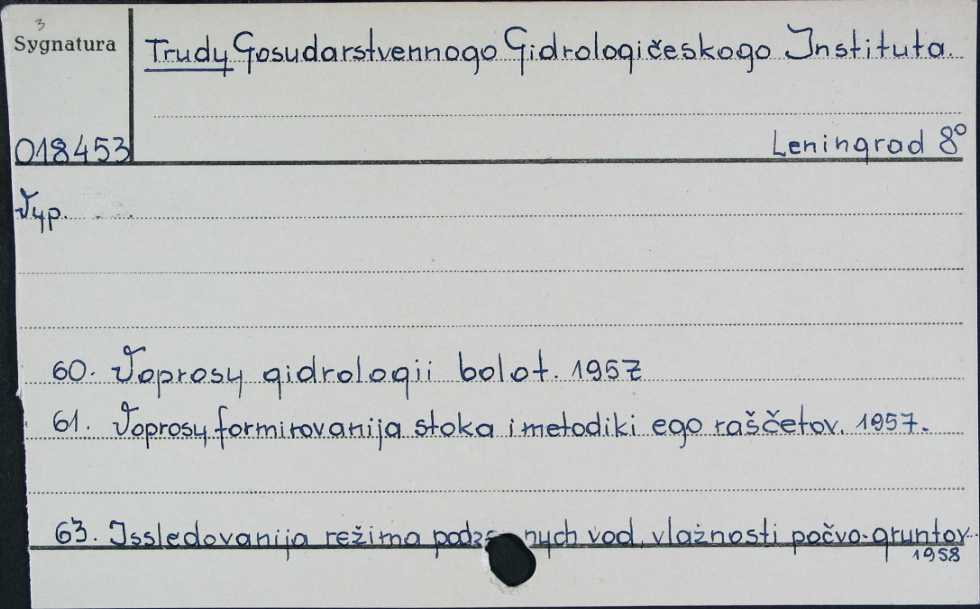 3
Sygnatura
Trudy Gosudarstvennogo Gidrologičeskogo Instituta.
018453
Leningrad 8°
Vyp.
60. Voprosy gidrologii bolot. 1957
61. Voprosy formirovanija stoka i metodiki ego raščetov. 1957.
63. Issledovanija režima vod, vlažnosti počvo-gruntov.
1958